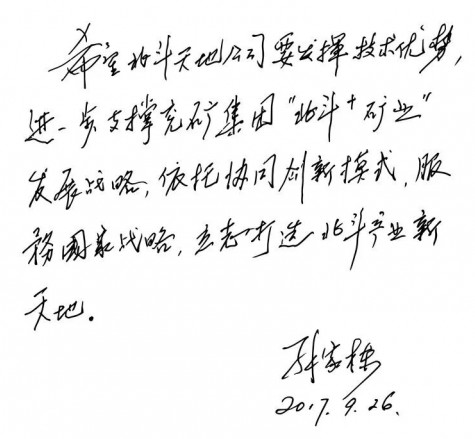 希望北斗天地公司要发挥技术优势，
进一步支撑兖矿集团“北斗+矿业”
发展战略，依托协同创新模式，服
務國家战略，立志打造北斗产业新
天地。
孙家栋
2017.9.26.